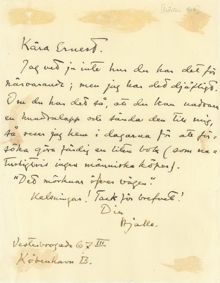 Kära Ernest.
Jag vet ju inte hur du har det för
närvarande; men jag har det djäfligt.
Om du har det så, att du kan undvara
en hundralapp och sända den till mig,
så reser jag hem i dagarna för att för-
söka göra färdig en liten bok (som na-
turligtvis ingen människa köper).
"Det mörknar öfver vägen".
Helsningar! Tack för brefvet!
Din
Hjalle.
Vesterbrogade 67 III.
København B.